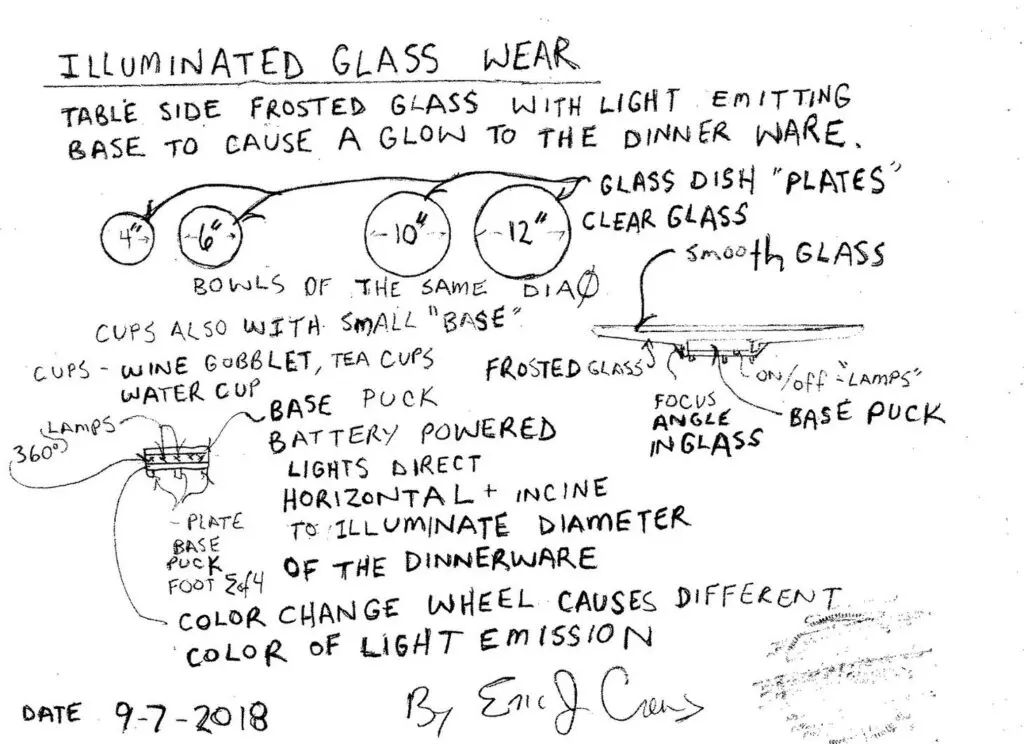 ILLUMINATED GLASS WEAR
TABLE SIDE FROSTED GLASS WITH LIGHT EMITTING
BASE TO CAUSE A GLOW TO THE DINNER WARE.
GLASS DISH "PLATES"
CLEAR GLASS
4" 6" 10" 12"
BOWLS OF THE SAME DIAØ
smooth GLASS
CUPS ALSO WITH SMALL "BASE"
CUPS - WINE GOBBLET, TEA CUPS
WATER CUP
FROSTED GLASS
FOCUS
ANGLE
IN GLASS
ON/off "LAMPS"
BASE PUCK
LAMPS
360°
BASE PUCK
BATTERY POWERED
LIGHTS DIRECT
HORIZONTAL + INCINE
TO ILLUMINATE DIAMETER
OF THE DINNERWARE
- PLATE
BASE
PUCK
FOOT of 4
COLOR CHANGE WHEEL CAUSES DIFFERENT
COLOR OF LIGHT EMISSION
DATE 9-7-2018
By Eric J